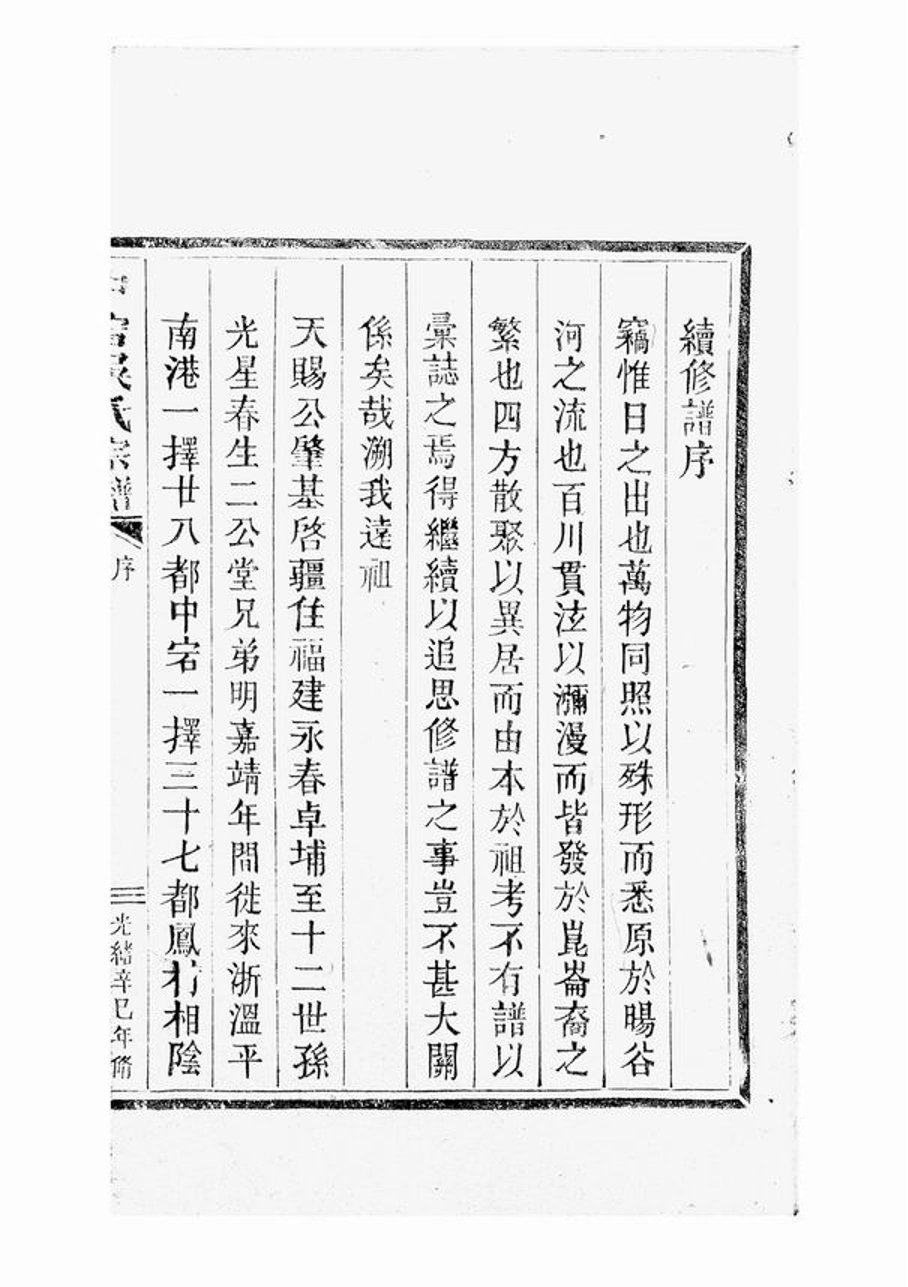 續修譜序
竊惟日之出也萬物同照以殊形而悉原於暘谷
河之流也百川貫泫以瀰漫而皆發於崑崙裔之
繁也四方散聚以異居而由本於祖考不有譜以
彙誌之焉得繼續以追思修譜之事豈不甚大關
係矣哉溯我遠祖
天賜公肇基啓疆住福建永春卓埔至十二世孫
光星春生二公堂兄弟明嘉靖年間徙來浙溫平
南港一擇廿八都中宕一擇三十七都鳳村相陰
氏宗譜
序
光緒辛巳年脩